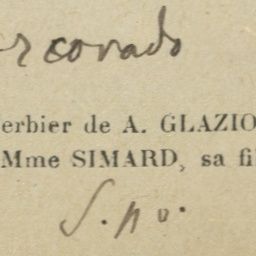 ercovado
erbier de A. GLAZIO
Mme SIMARD, sa fi